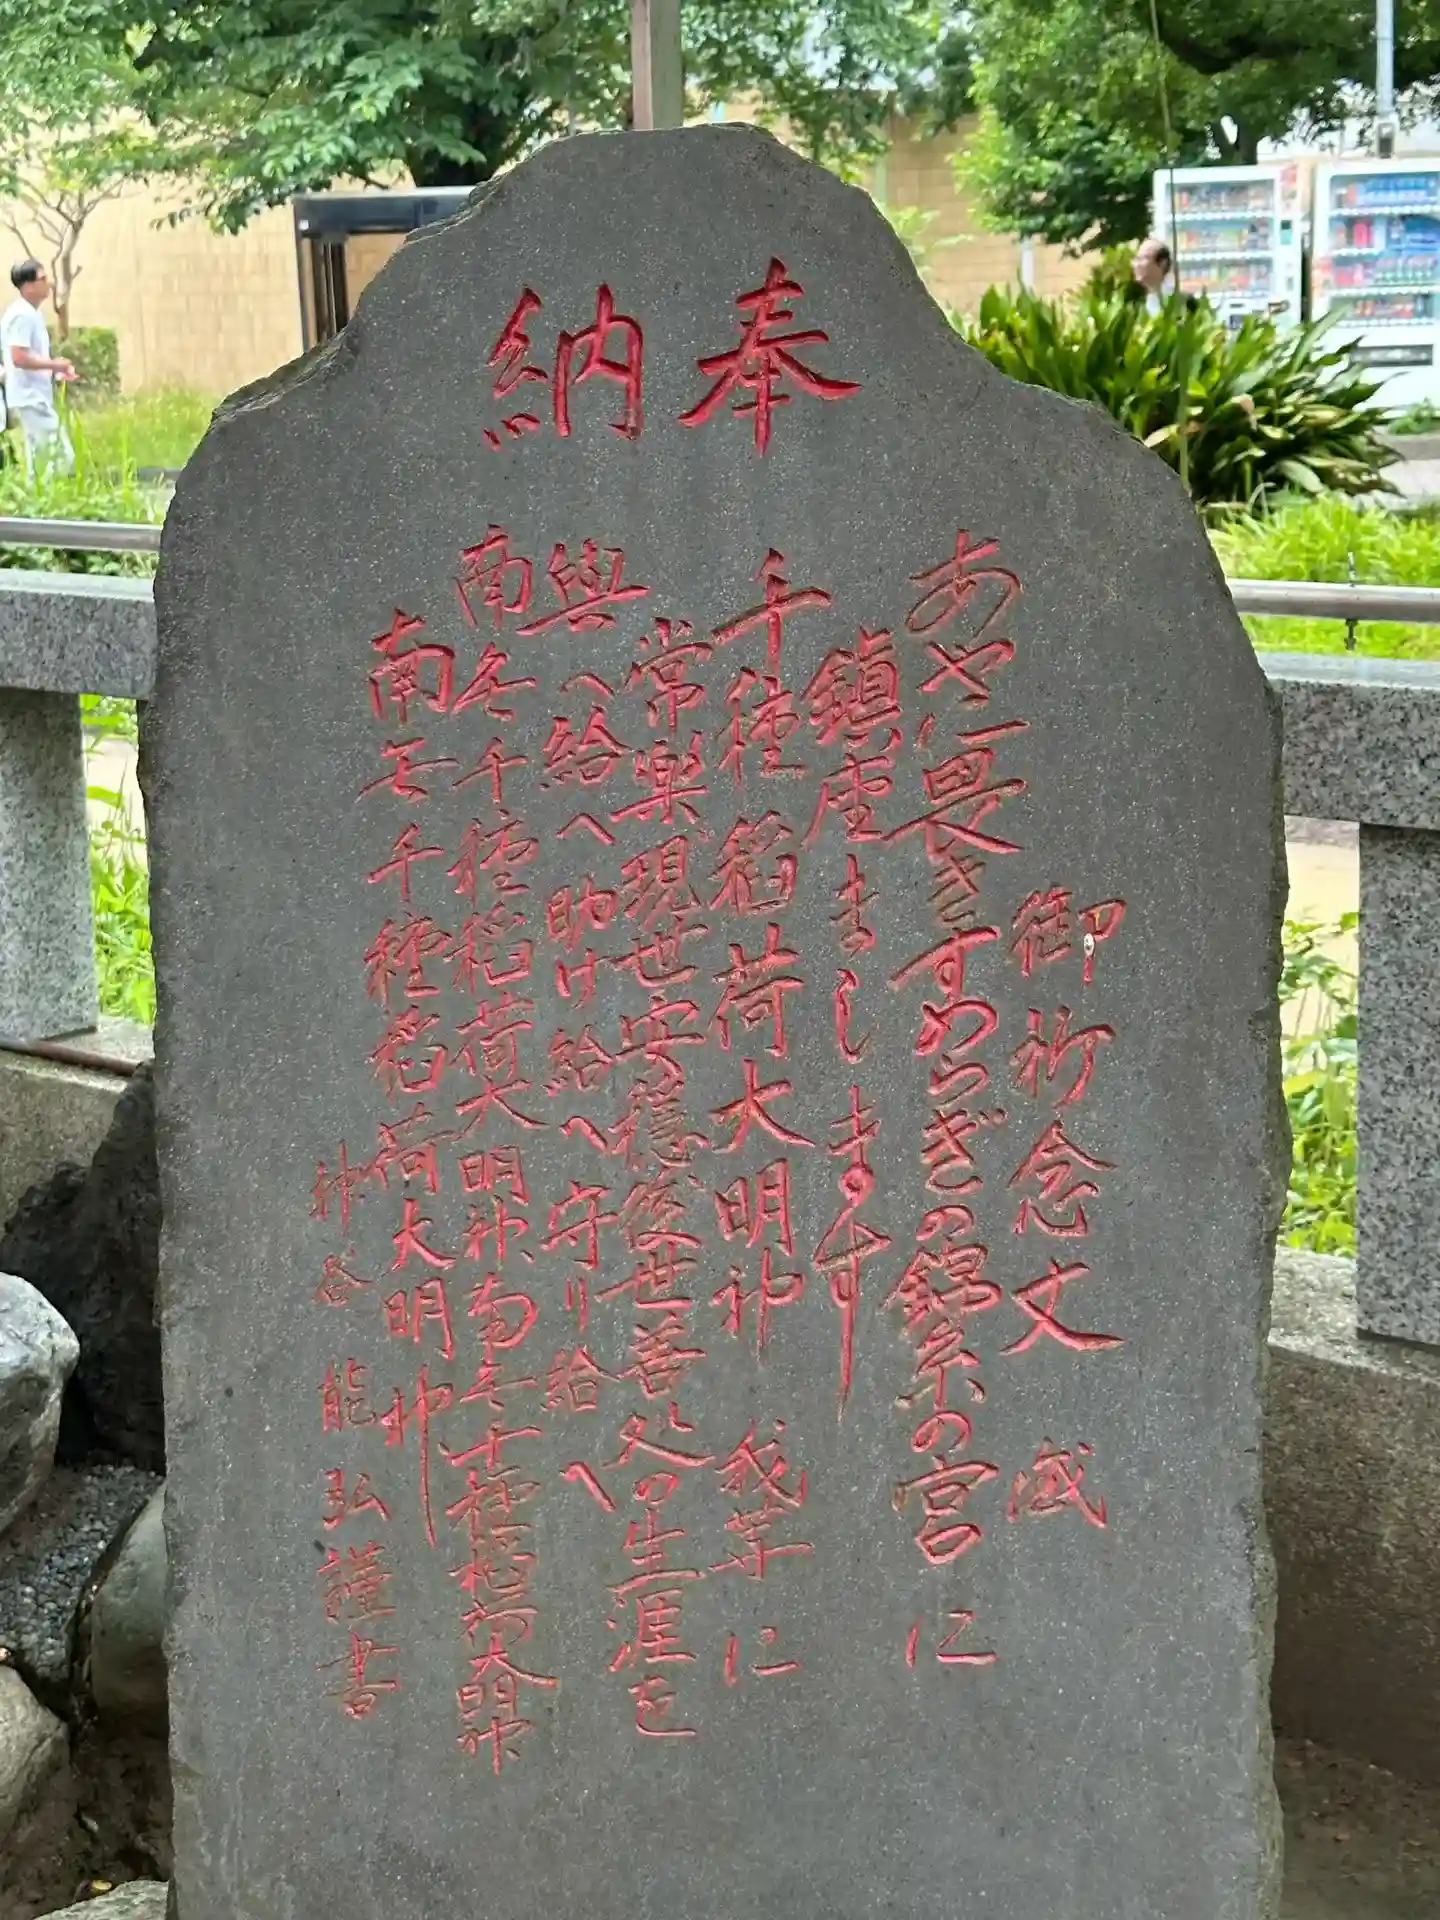 奉納
御祈念文
あやに畏きすめらぎの錦糸の宮に
鎮座ましますす
千種稲荷大明神 我等に
常楽現世安穏後世善処の生涯を
与へ給へ助け給へ守り給へ
南無千種稲荷大明神南無千種稲荷大明神
南無千種稲荷大明神
神谷 龍弘謹書